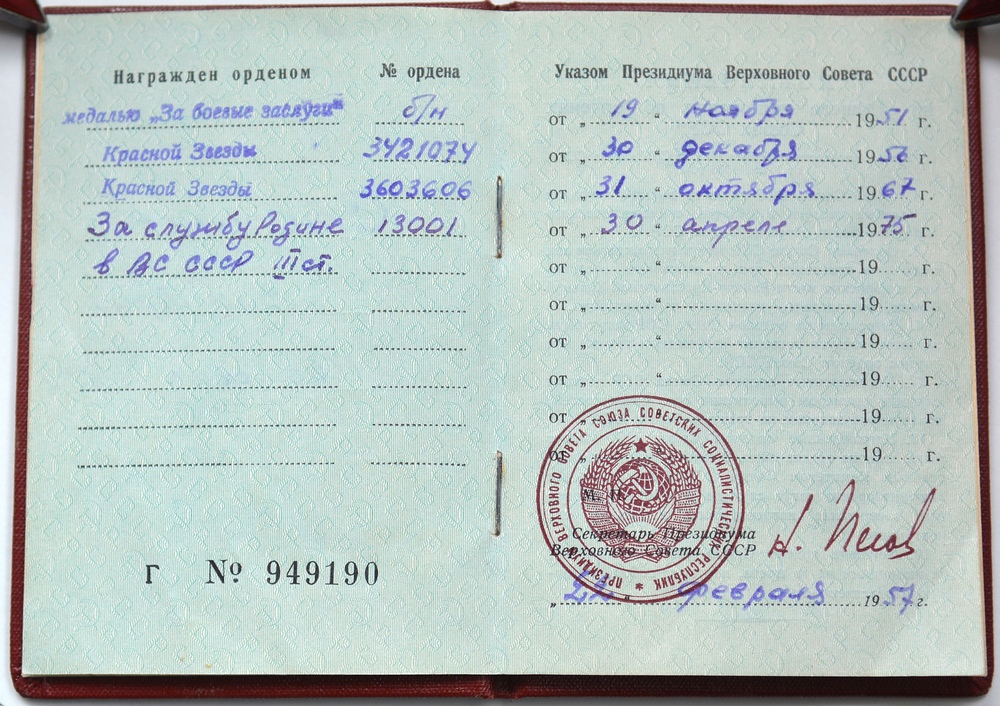 Награжден орденом № ордена
медалью „За боевые заслуги" б/н
Красной Звезды 3421074
Красной Звезды 3603606
За службу Родине 13001
в ВС СССР III ст.
Г № 949190
Указом Президиума Верховного Совета СССР
от „19" ноября 1951 г.
от „30" декабря 1956 г.
от „31" октября 1967 г.
от „30" апреле 1975 г.
от „ " 19 г.
от „ " 19 г.
от „ " 19 г.
от „ " 19 г.
от „ " 19 г.
от „ " 19 г.
ПРЕЗИДИУМ ВЕРХОВНОГО СОВЕТА СОЮЗА СОВЕТСКИХ СОЦИАЛИСТИЧЕСКИХ РЕСПУБЛИК
М. П.
Секретарь Президиума
Верховного Совета СССР
„22" февраля 1957 г.